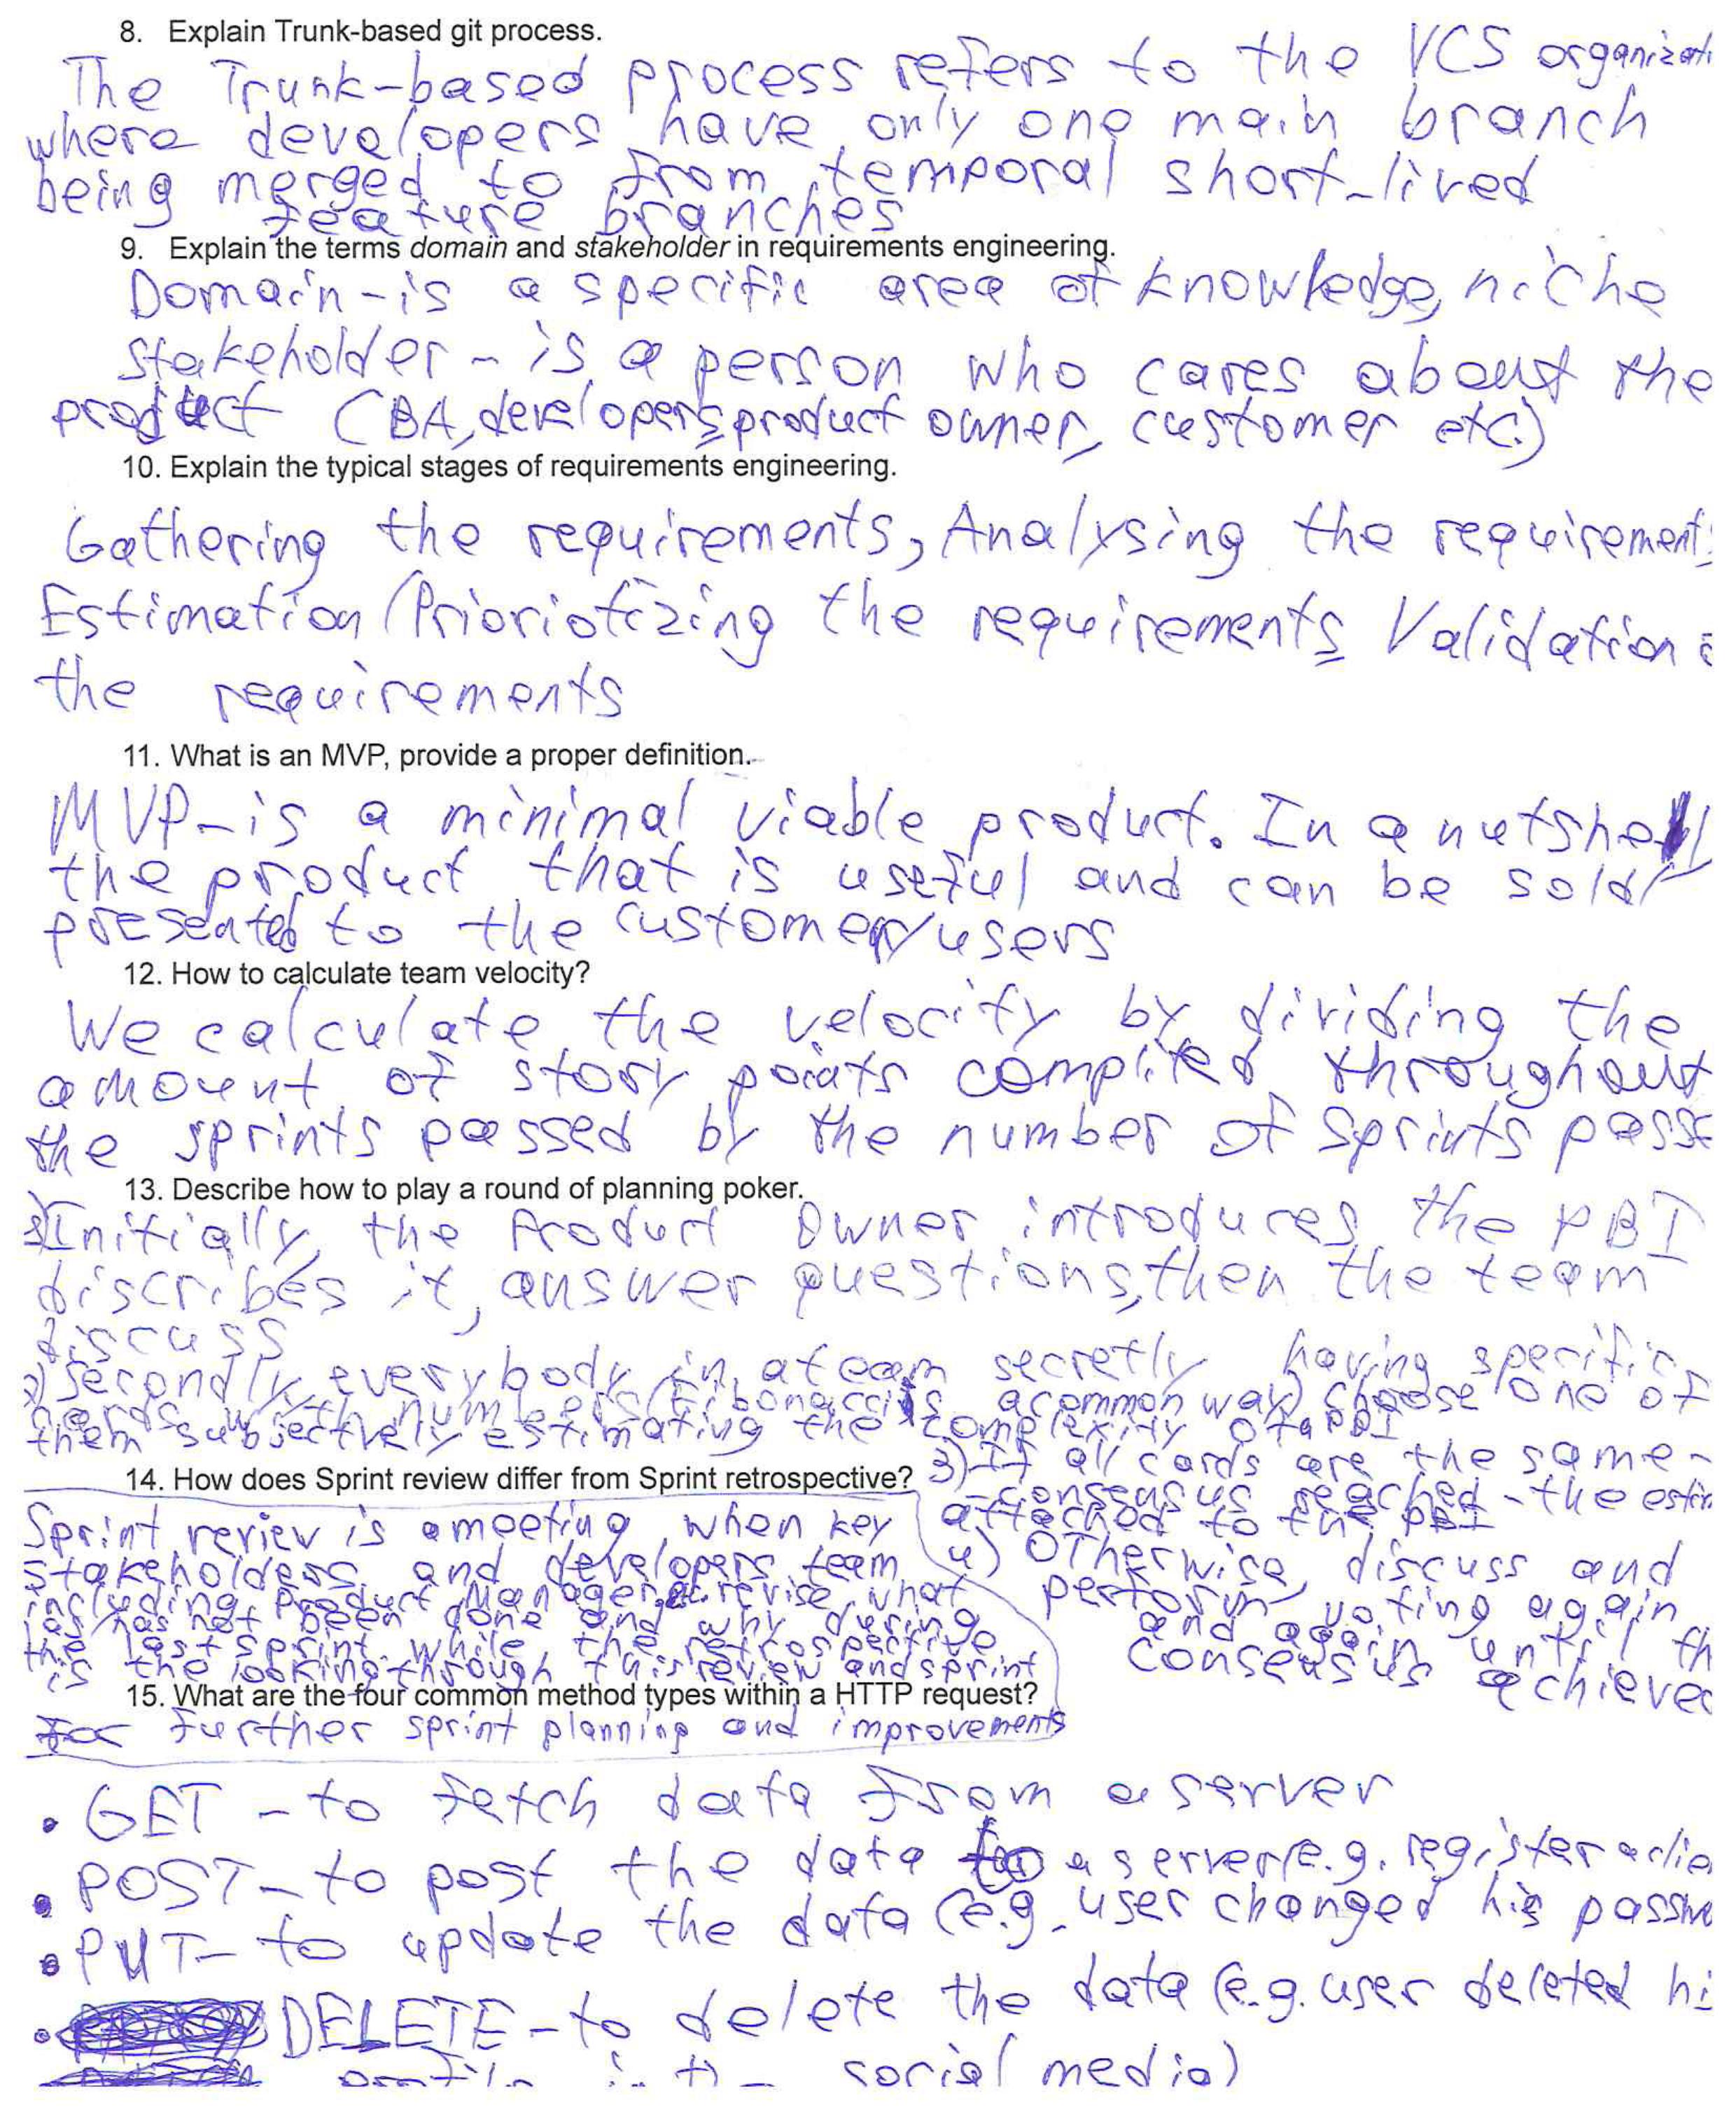 8. Explain Trunk-based git process.
The Trunk-based process refers to the VCS organizati
where developers have only one main branch
being merged to from temporal short-lived
feature branches
9. Explain the terms domain and stakeholder in requirements engineering.
Domain - is a specific area of knowledge, niche
stakeholder - is a person who cares about the
product (BA, developers, product owner, customer etc.)
10. Explain the typical stages of requirements engineering.
Gathering the requirements, Analysing the requirements
Estimation/Priorioticizing the requirements, Validation
the requirements
11. What is an MVP, provide a proper definition.
MVP - is a minimal viable product. In a nutshell
the product that is useful and can be sold/
presented to the customer/users
12. How to calculate team velocity?
We calculate the velocity by dividing the
amount of story points complited throughout
the sprints passed by the number of sprints passe
13. Describe how to play a round of planning poker.
1) Initially, the Product Owner introduces the PBI
discribes it, answer questions, then the team
discuss
2) Secondly, everybody in a team secretly having specific
cards with numbers (Fibonacci is a common way) choose one of
them subjectively estimating the complexity of a PBI
3) If all cards are the same -
consensus reached - the estim
attached to the PBI
4) Otherwise, discuss and
perform voting again
and again until th
consensus achieved
14. How does Sprint review differ from Sprint retrospective?
Sprint reviev is a meeting when key
stakeholders and developers team
including Product Manager revise what
has/has not been done and why during
the last sprint. While, the retrospective
is the looking through this review and sprint
for further sprint planning and improvements
15. What are the four common method types within a HTTP request?
• GET - to fetch data from a server
• POST - to post the data to a server (e.g. register a clie
• PUT - to update the data (e.g. user changed his passw
• DELETE - to delete the data (e.g. user deleted hi
social media)